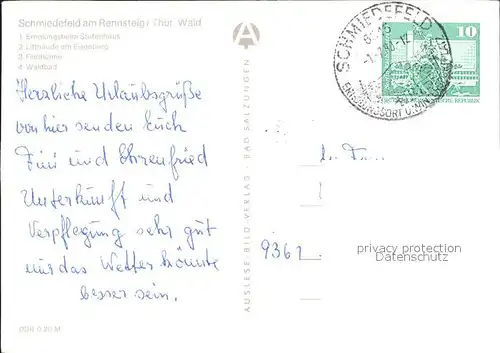 Schmiedefeld am Rennsteig / Thür. Wald
1 Erholungsheim Stutenhaus
2 Lifthäusle am Eisenberg
3 Ferienheim
4 Waldbad
Herzliche Urlaubsgrüße
von hier senden Euch
und Ehrenfried
Unterkunft und
Verpflegung sehr gut
nur das Wetter könnte
besser sein.
DDR 0,20 M
AUSLESE-BILD-VERLAG - BAD SALZUNGEN
A
SCHMIEDEFELD
10
REPUBLIK
936
privacy protection
Datenschutz